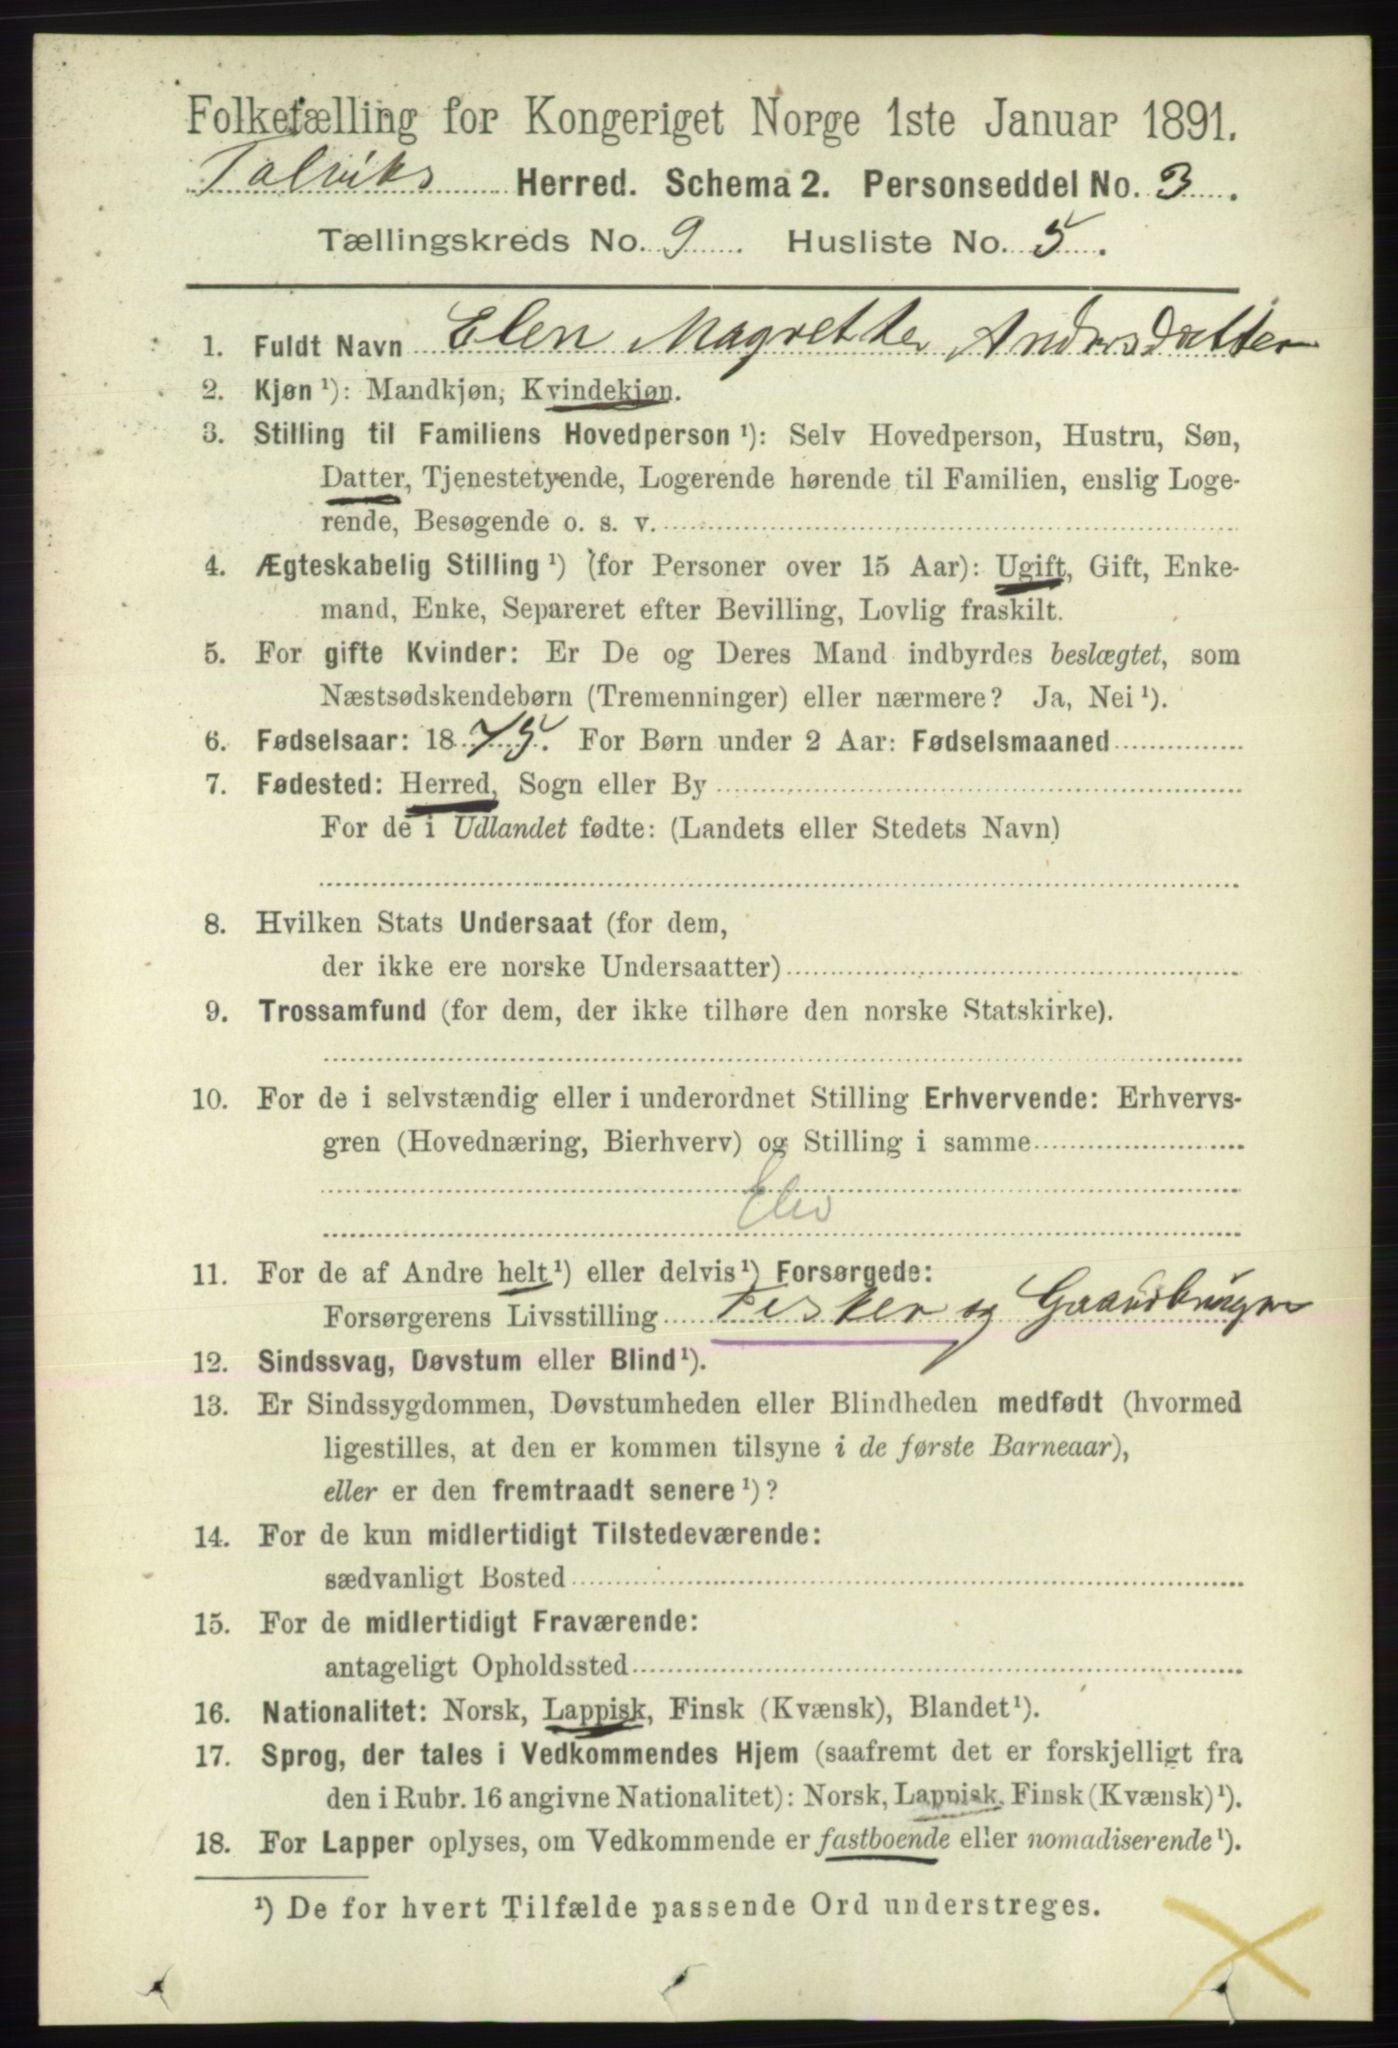 Folketælling for Kongeriget Norge 1ste Januar 1891.
Talviks Herred. Schema 2. Personseddel No. 3.
Tællingskreds No. 9. Husliste No. 5.
1. Fuldt Navn Elen Magrethe Andersdatter
2. Kjøn ¹): Mandkjøn, Kvindekjøn.
3. Stilling til Familiens Hovedperson ¹): Selv Hovedperson, Hustru, Søn,
Datter, Tjenestetyende, Logerende hørende til Familien, enslig Loge-
rende, Besøgende o. s. v.
4. Ægteskabelig Stilling ¹) (for Personer over 15 Aar): Ugift, Gift, Enke-
mand, Enke, Separeret efter Bevilling, Lovlig fraskilt.
5. For gifte Kvinder: Er De og Deres Mand indbyrdes beslægtet, som
Næstsødskendebørn (Tremenninger) eller nærmere? Ja, Nei ¹).
6. Fødselsaar: 1875. For Børn under 2 Aar: Fødselsmaaned
7. Fødested: Herred, Sogn eller By
For de i Udlandet fødte: (Landets eller Stedets Navn)
8. Hvilken Stats Undersaat (for dem,
der ikke ere norske Undersaatter)
9. Trossamfund (for dem, der ikke tilhøre den norske Statskirke).
10. For de i selvstændig eller i underordnet Stilling Erhvervende: Erhvervs-
gren (Hovednæring, Bierhverv) og Stilling i samme
Elev
11. For de af Andre helt ¹) eller delvis ¹) Forsørgede:
Forsørgerens Livsstilling Fisker og Gaardbruger
12. Sindssvag, Døvstum eller Blind ¹).
13. Er Sindssygdommen, Døvstumheden eller Blindheden medfødt (hvormed
ligestilles, at den er kommen tilsyne i de første Barneaar),
eller er den fremtraadt senere ¹)?
14. For de kun midlertidigt Tilstedeværende:
sædvanligt Bosted
15. For de midlertidigt Fraværende:
antageligt Opholdssted
16. Nationalitet: Norsk, Lappisk, Finsk (Kvænsk), Blandet ¹).
17. Sprog, der tales i Vedkommendes Hjem (saafremt det er forskjelligt fra
den i Rubr. 16 angivne Nationalitet): Norsk, Lappisk, Finsk (Kvænsk) ¹).
18. For Lapper oplyses, om Vedkommende er fastboende eller nomadiserende ¹).
¹) De for hvert Tilfælde passende Ord understreges.